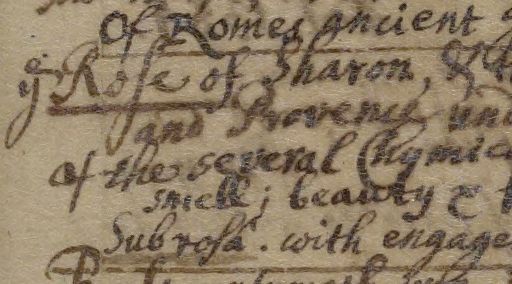 Of Romes ancient
yͤ Rose of Sharon, &
and Provence und
of the several Chymic
smell; beauty &
Sub rosâ. with engage